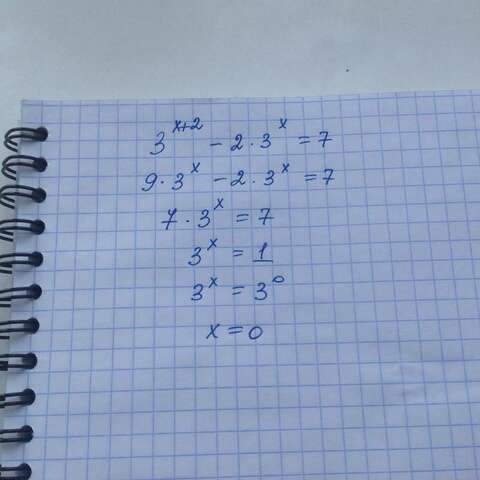 3^{x+2} - 2 · 3^x = 7
9 · 3^x - 2 · 3^x = 7
7 · 3^x = 7
3^x = 1
3^x = 3^0
x = 0